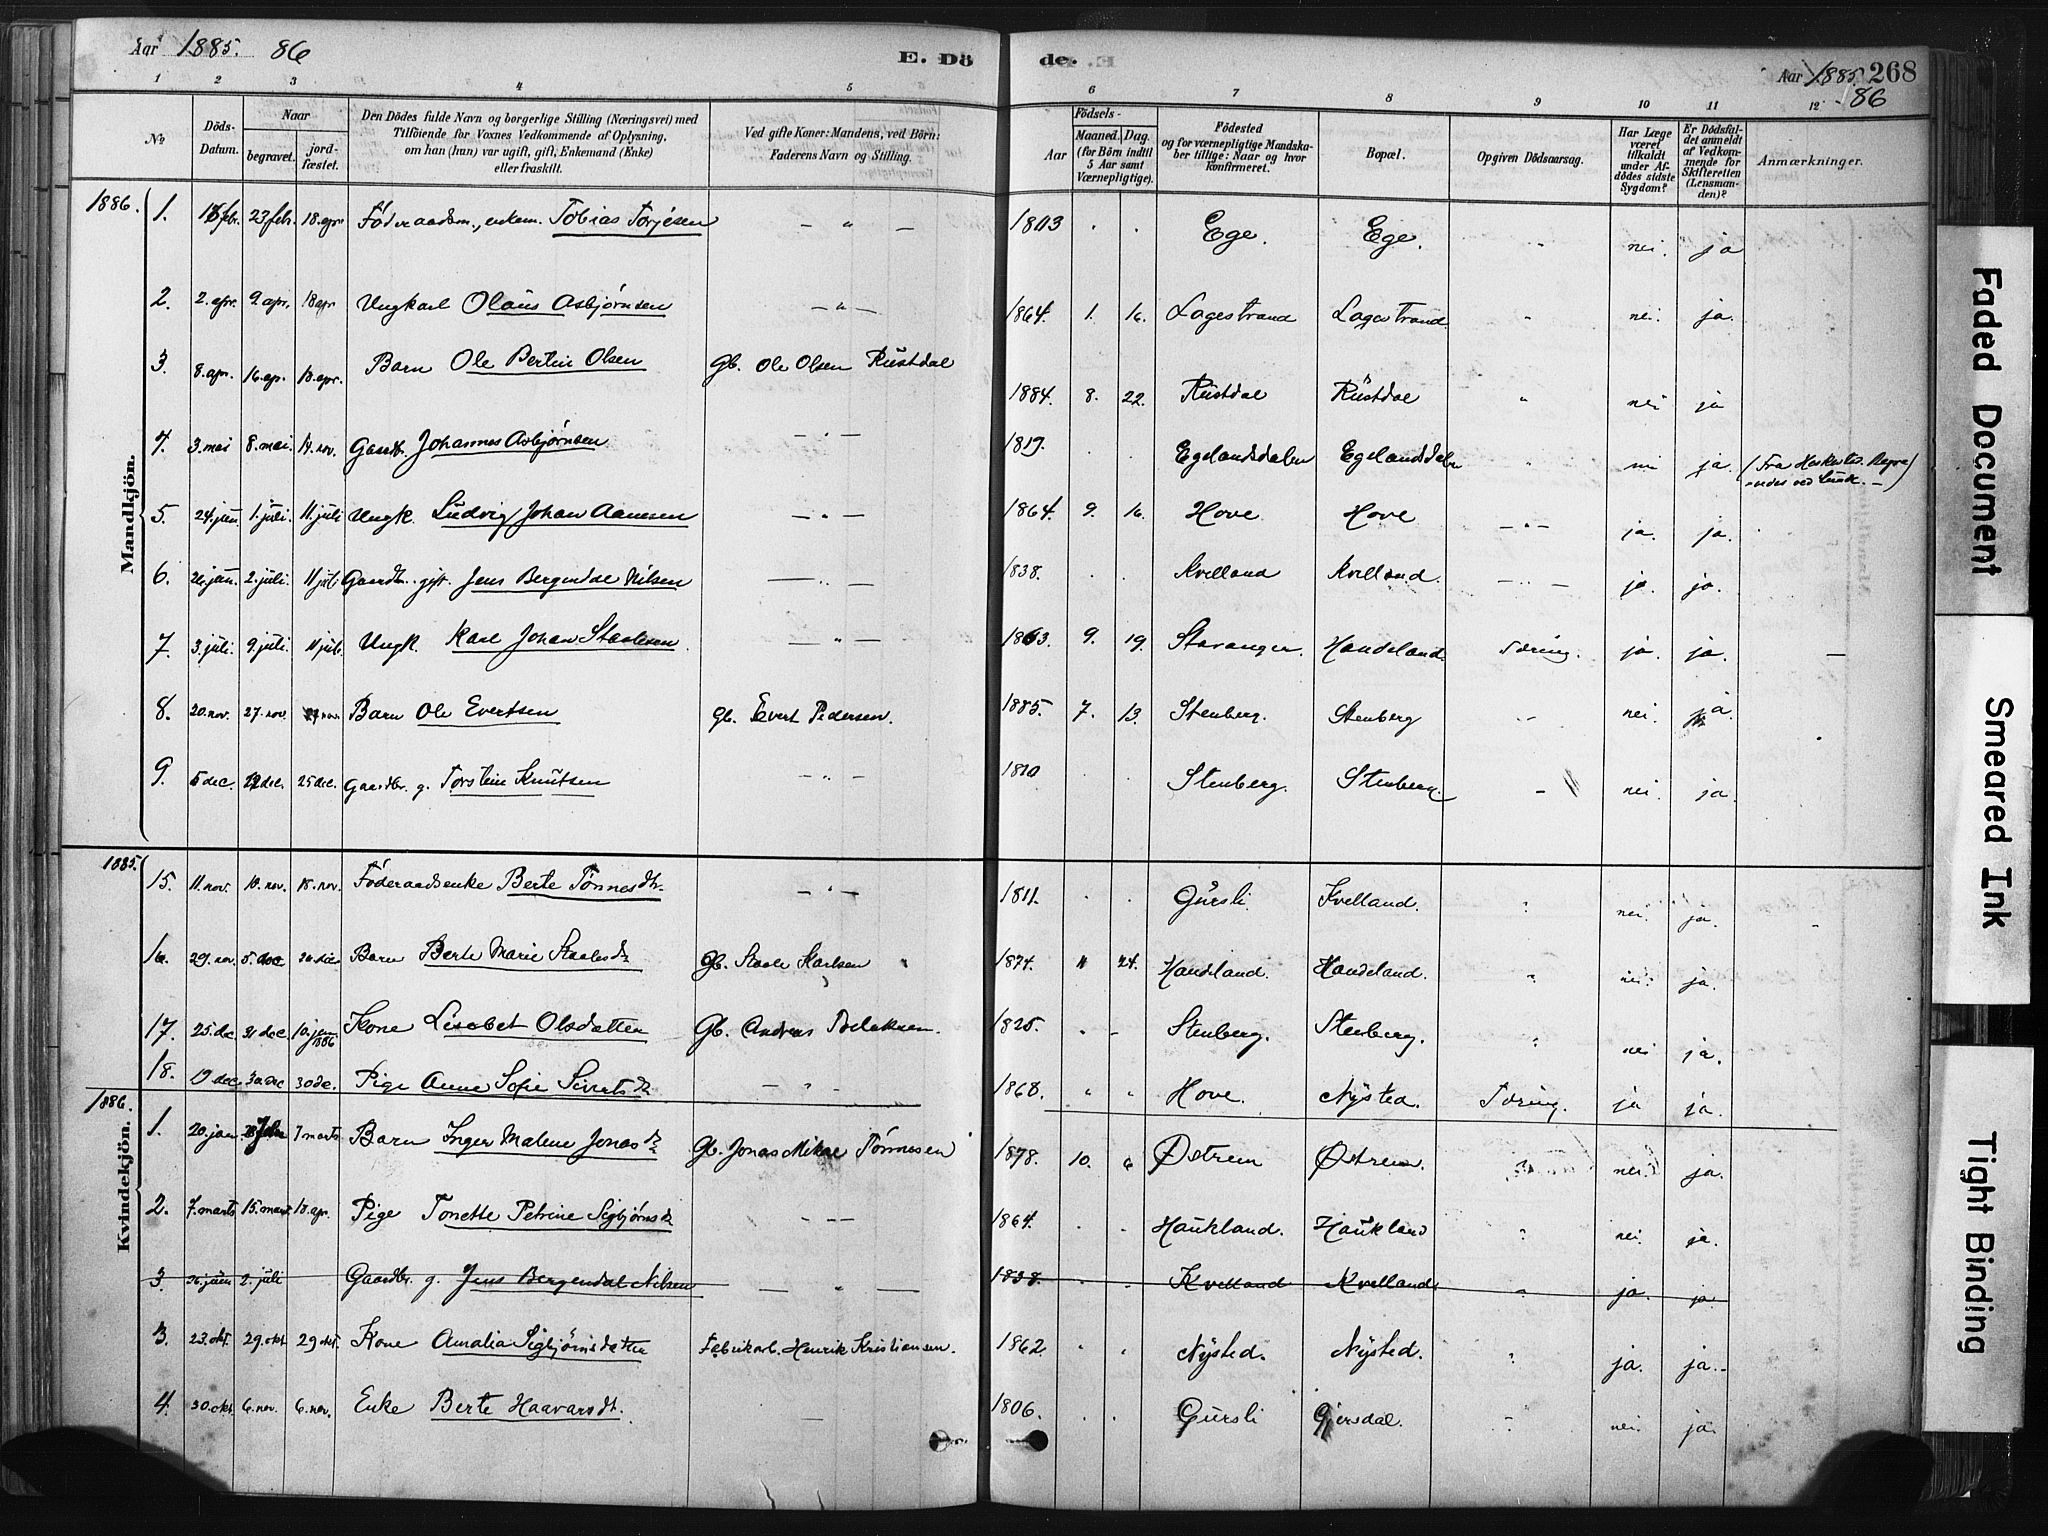 Aar 1885. 86
E. Dö
de.
Aar 1885. 268
- 86
1 2 3 4 5 6 7 8 9 10 11 12
№
Döds-Datum.
Naar
begravet.
jord-fæstet.
Den Dödes fulde Navn og borgerlige Stilling (Næringsvei) med
Tilföiende for Voxnes Vedkommende af Oplysning,
om han (hun) var ugift, gift, Enkemand (Enke)
eller fraskilt.
Ved gifte Koner: Mandens, ved Börn:
Faderens Navn og Stilling.
Födsels-
Aar
Maaned. Dag.
(for Börn indtil
5 Aar samt
Værnepligtige).
Födested
og for værnepligtige Mandska-
ber tillige: Naar og hvor
konfirmeret.
Bopæl.
Opgiven Dödsaarsag.
Har Læge
været
tilkaldt
under Af-
dödes sidste
Sygdom?
Er Dödsfal-
det anmeldt
af Vedkom-
mende for
Skifteretten
(Lensman-
den)?
Anmærkninger.
Mandkjön.
1886. 1. febr. 23 febr. 18. apr Föderaadsm., enkem. Tobias Torjesen — " — 1803 . . Ege. Ege. " nei. ja
2. 2. apr. 9. apr. 18 apr Ungkarl Olaus Asbjørnsen — " — 1864. 1. 16. Lagestrand Lagestrand. " nei. ja.
3. 8. apr. 16. ap. 18. apr. Barn Ole Bertin Olsen Gb. Ole Olsen Rustdal 1884. 8. 22. Rustdal Rustdal " nei ja
4. 3. mai 8. mai. 14. nov. Gaardb. Johannes Asbjørnsen — " — 1819. . . Egelandsdalen Egelandsdalen " nei ja. (Fra ved —)
5. 24. jun 1. juli. 11. juli Ungk. Ludvig Johan Aanesen — " — 1864. 9. 16. Hove Hove — " — ja. ja.
6. 26. jun. 2. juli. 11 juli Gaardb. gift. Jens Bergendal Nilsen — " — 1838. . . Kvelland Kvelland. — " — ja. ja.
7. 3. juli. 9. juli. 11 juli. Ungk. Karl Johan Staalesen — " — 1863. 9. 19. Stavanger. Handeland. Tæring. ja. ja. —
8. 20. nov. 27. nov. 27 nov. Barn Ole Evertsen Gb. Evert Pedersen. 1885. 7. 13. Stenberg. Stenberg " nei. ja.
9. 5 dec. 12 dec. 25 dec. Gaardbr. g. Torstein Knutsen — " — 1810 . . Stenberg. Stenberg. — nei. ja.
1885.
15. 11. nov. 18. nov. 18. nov. Föderaadsenke Berte Tønnesdtr. — " — 1811. . . Gursli Kvelland. " nei. ja.
16. 29. nov. 5. dec Barn Berte Marie Staalesdtr Gb. Staale Karlsen 1874. 11 24. Handeland. Handeland. " nei. ja.
17. 25. dec 31 dec 10. jan 1886 Kone Lisabet Olsdatter Gb. Andreas 1825. " – Stenberg. Stenberg. " nei ja.
18. 19 dec. 30 dec 30 de. Pige Anne Sofie Sivertsdtr — " — 1868. " " Hove. Nysted. Tæring. ja ja.
Kvindekjön.
1886.
1. 20. jan 7 marts Barn Inger Malene Jonasdtr Gb. Jonas Mikal Tønnesen 1878. 10. 6 Østrem Østrem. " nei. ja.
2. 7. marts 15. mars 18. apr. Pige Tonette Petrine Sigbjørnsdtr " — 1864. . . Haukland. Haukland " nei. ja.
3 26. juni 2. juli Gaardbr. g. Jens Bergendal Nilsen — " — 1838. . . Kvelland Kvelland " ja. ja.
3. 23. okt. 29. okt 29 okt. Kone Amalia Sigbjørnsdatter Fabrikarb. Henrik Kristiansen. 1862. " " Nysted. Nysted. " ja. ja.
4. 30. okt. 6. nov. 6. nov. Enke Berte Haavarsdt. — 1806. . . Gursli Gjersdal. " nei. ja.
Faded Document
Smeared Ink
Tight Binding